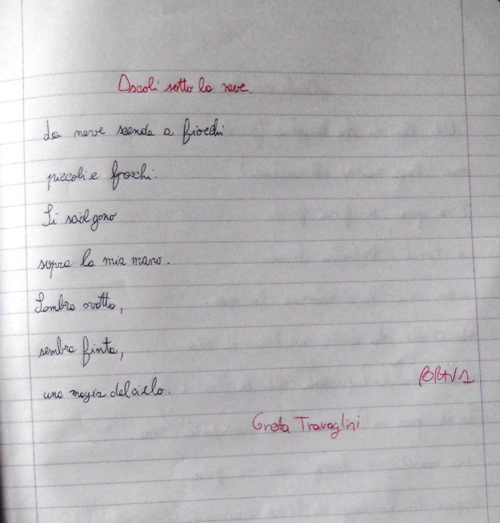 Ascoli sotto la neve.
La neve scende a fiocchi
piccoli e frachi.
Si sciolgono
sopra la mia mano.
Sembra ovatta,
sembra finta,
una magia del cielo.
BRAVA
Greta Travaglini